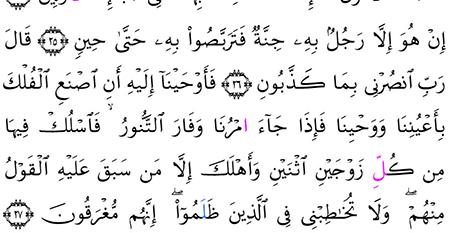 إِنْ هُوَ إِلَّا رَجُلُۢ بِهِۦ جِنَّةٌ فَتَرَبَّصُوا۟ بِهِۦ حَتَّىٰ حِينٍ ۝٢٥ قَالَ
رَبِّ ٱنصُرْنِى بِمَا كَذَّبُونِ ۝٢٦ فَأَوْحَيْنَآ إِلَيْهِ أَنِ ٱصْنَعِ ٱلْفُلْكَ
بِأَعْيُنِنَا وَوَحْيِنَا فَإِذَا جَآءَ امْرُنَا وَفَارَ ٱلتَّنُّورُ ۙ فَٱسْلُكْ فِيهَا
مِن كُلِّ زَوْجَيْنِ ٱثْنَيْنِ وَأَهْلَكَ إِلَّا مَن سَبَقَ عَلَيْهِ ٱلْقَوْلُ
مِنْهُمْ ۖ وَلَا تُخَـٰطِبْنِى فِى ٱلَّذِينَ ظَلَمُوٓا۟ ۖ إِنَّهُم مُّغْرَقُونَ ۝٢٧